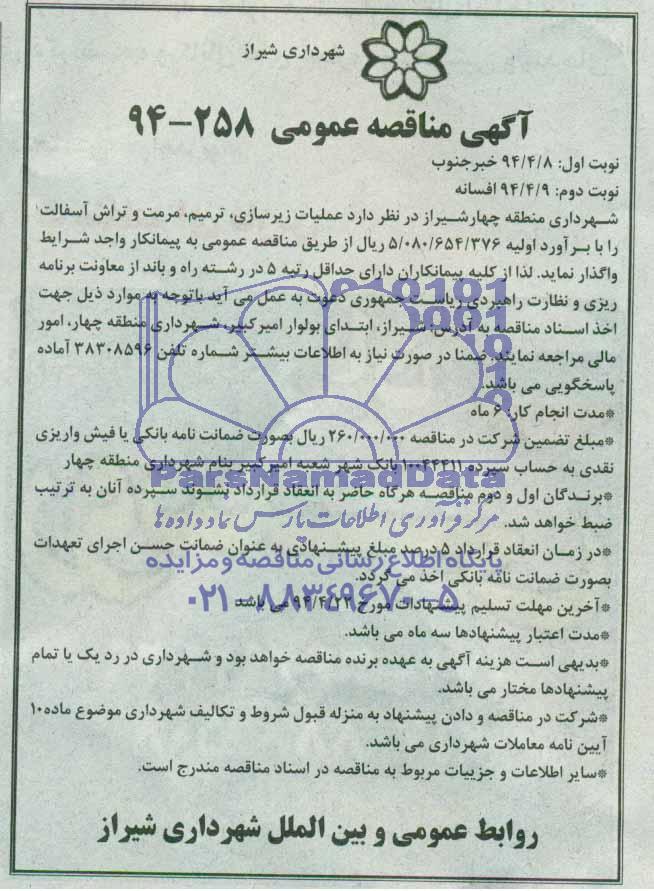 شهرداری شیراز
آگهی مناقصه عمومی ۲۵۸-۹۴
نوبت اول: ۹۴/۴/۸ خبرجنوب
نوبت دوم: ۹۴/۴/۹ افسانه
شهرداری منطقه چهارشیراز در نظر دارد عملیات زیرسازی، ترمیم، مرمت و تراش آسفالت
را با برآورد اولیه ۵/۰۸۰/۶۵۴/۳۷۶ ریال از طریق مناقصه عمومی به پیمانکار واجد شرایط
واگذار نماید. لذا از کلیه پیمانکاران دارای حداقل رتبه ۵ در رشته راه و باند از معاونت برنامه
ریزی و نظارت راهبردی ریاست جمهوری دعوت به عمل می آید باتوجه به موارد ذیل جهت
اخذ اسناد مناقصه به آدرس: شیراز، ابتدای بولوار امیرکبیر، شهرداری منطقه چهار، امور
مالی مراجعه نمایند. ضمنا در صورت نیاز به اطلاعات بیشتر شماره تلفن ۳۸۳۰۸۵۹۶ آماده
پاسخگویی می باشد.
*مدت انجام کار: ۶ ماه
*مبلغ تضمین شرکت در مناقصه ۲۶۰/۰۰۰/۰۰۰ ریال بصورت ضمانت نامه بانکی یا فیش واریزی
نقدی به حساب سپرده ۱۰۰۴۴۴۱۱ بانک شهر شعبه امیرکبیر بنام شهرداری منطقه چهار
ParsNamadData
*برندگان اول و دوم مناقصه هرگاه حاضر به انعقاد قرارداد نشوند سپرده آنان به ترتیب
ضبط خواهد شد.
مرکز فرآوری اطلاعات پارس نماد داده ها
*در زمان انعقاد قرارداد ۵ درصد مبلغ پیشنهادی به عنوان ضمانت حسن اجرای تعهدات
پایگاه اطلاع رسانی مناقصه و مزایده
بصورت ضمانت نامه بانکی اخذ می گردد.
*آخرین مهلت تسلیم پیشنهادات مورخ ۹۴/۴/۲۲ می باشد
۰۲۱-۸۸۳۴۹۶۷۰-۵
*مدت اعتبار پیشنهادها سه ماه می باشد.
*بدیهی است هزینه آگهی به عهده برنده مناقصه خواهد بود و شهرداری در رد یک یا تمام
پیشنهادها مختار می باشد.
*شرکت در مناقصه و دادن پیشنهاد به منزله قبول شروط و تکالیف شهرداری موضوع ماده۱۰
آیین نامه معاملات شهرداری می باشد.
*سایر اطلاعات و جزییات مربوط به مناقصه در اسناد مناقصه مندرج است.
روابط عمومی و بین الملل شهرداری شیراز